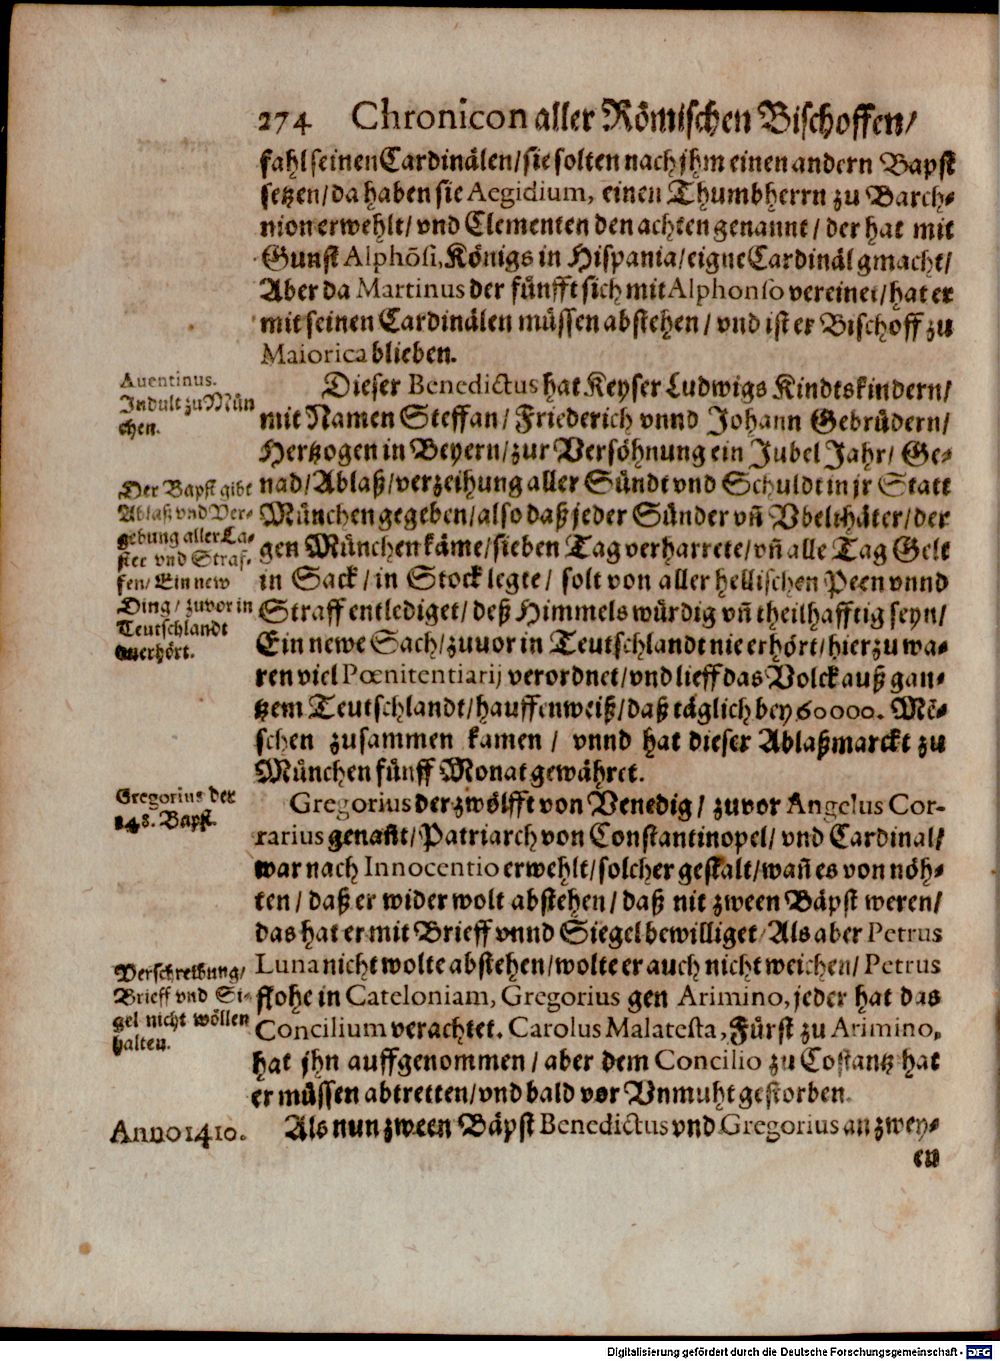 274 Chronicon aller Römischen Bischoffen/
fahl seinen Cardinälen/ sie solten nach jhm einen andern Bapst
setzen/ da haben sie Aegidium, einen Thumbherrn zu Barch-
nion erwehlt/ vnd Clementen den achten genannt/ der hat mit
Gunst Alphõsi, Königs in Hispania/ eigne Cardinäl gmacht/
Aber da Martinus der fünfft sich mit Alphonso vereinet/ hat er
mit seinen Cardinälen müssen abstehen/ vnd ist er Bischoff zu
Maiorica blieben.
Auentinus.
Indult zu Mün
chen.
Dieser Benedictus hat Keyser Ludwigs Kindtskindern/
mit Namen Steffan/ Friederich vnnd Johann Gebrüdern/
Hertzogen in Beyern/ zur Versöhnung ein Jubel Jahr/ Ge-
nad/ Ablaß/ verzeihung aller Sündt vnd Schuldt in jr Statt
München gegeben/ also daß jeder Sünder vñ Vbelthäter/ der
gen München käme/ sieben Tag verharrete/ vñ alle Tag Gelt
in Sack/ in Stock legte/ solt von aller hellischen Peen vnnd
Straff entlediget/ deß Himmels würdig vñ theilhafftig seyn/
Ein newe Sach/ zuuor in Teutschlandt nie erhört/ hierzu wa-
ren viel Pœnitentiarij verordnet/ vnd lieff das Volck auß gan-
tzem Teutschlandt/ hauffenweiß/ daß täglich bey 60000. Mẽ-
schen zusammen kamen/ vnnd hat dieser Ablaßmarckt zu
München fünff Monat gewähret.
Der Bapst gibt
Ablaß vnd Ver-
gebung aller La-
ster vnd Straf-
fen/ Ein new
Ding/ zuvor in
Teutschlandt
vnerhört.
Gregorius der
148. Bapst.
Gregorius der zwölfft von Venedig/ zuvor Angelus Cor-
rarius genañt/ Patriarch von Constantinopel/ vnd Cardinal/
war nach Innocentio erwehlt/ solcher gestalt/ wañ es von nöh-
ten/ daß er wider wolt abstehen/ daß nit zween Bäpst weren/
das hat er mit Brieff vnnd Siegel bewilliget/ Als aber Petrus
Luna nicht wolte abstehen/ wolte er auch nicht weichen/ Petrus
flohe in Cateloniam, Gregorius gen Arimino, jeder hat das
Concilium verachtet. Carolus Malatesta, Fürst zu Arimino,
hat jhn auffgenommen/ aber dem Concilio zu Costantz hat
er müssen abtretten/ vnd bald vor Vnmuht gestorben.
Verschreibung/
Brieff vnd Si-
gel nicht wöllen
halten.
Anno 1410.
Als nun zween Bäpst Benedictus vnd Gregorius an zwey-
en
Digitalisierung gefördert durch die Deutsche Forschungsgemeinschaft - DFG